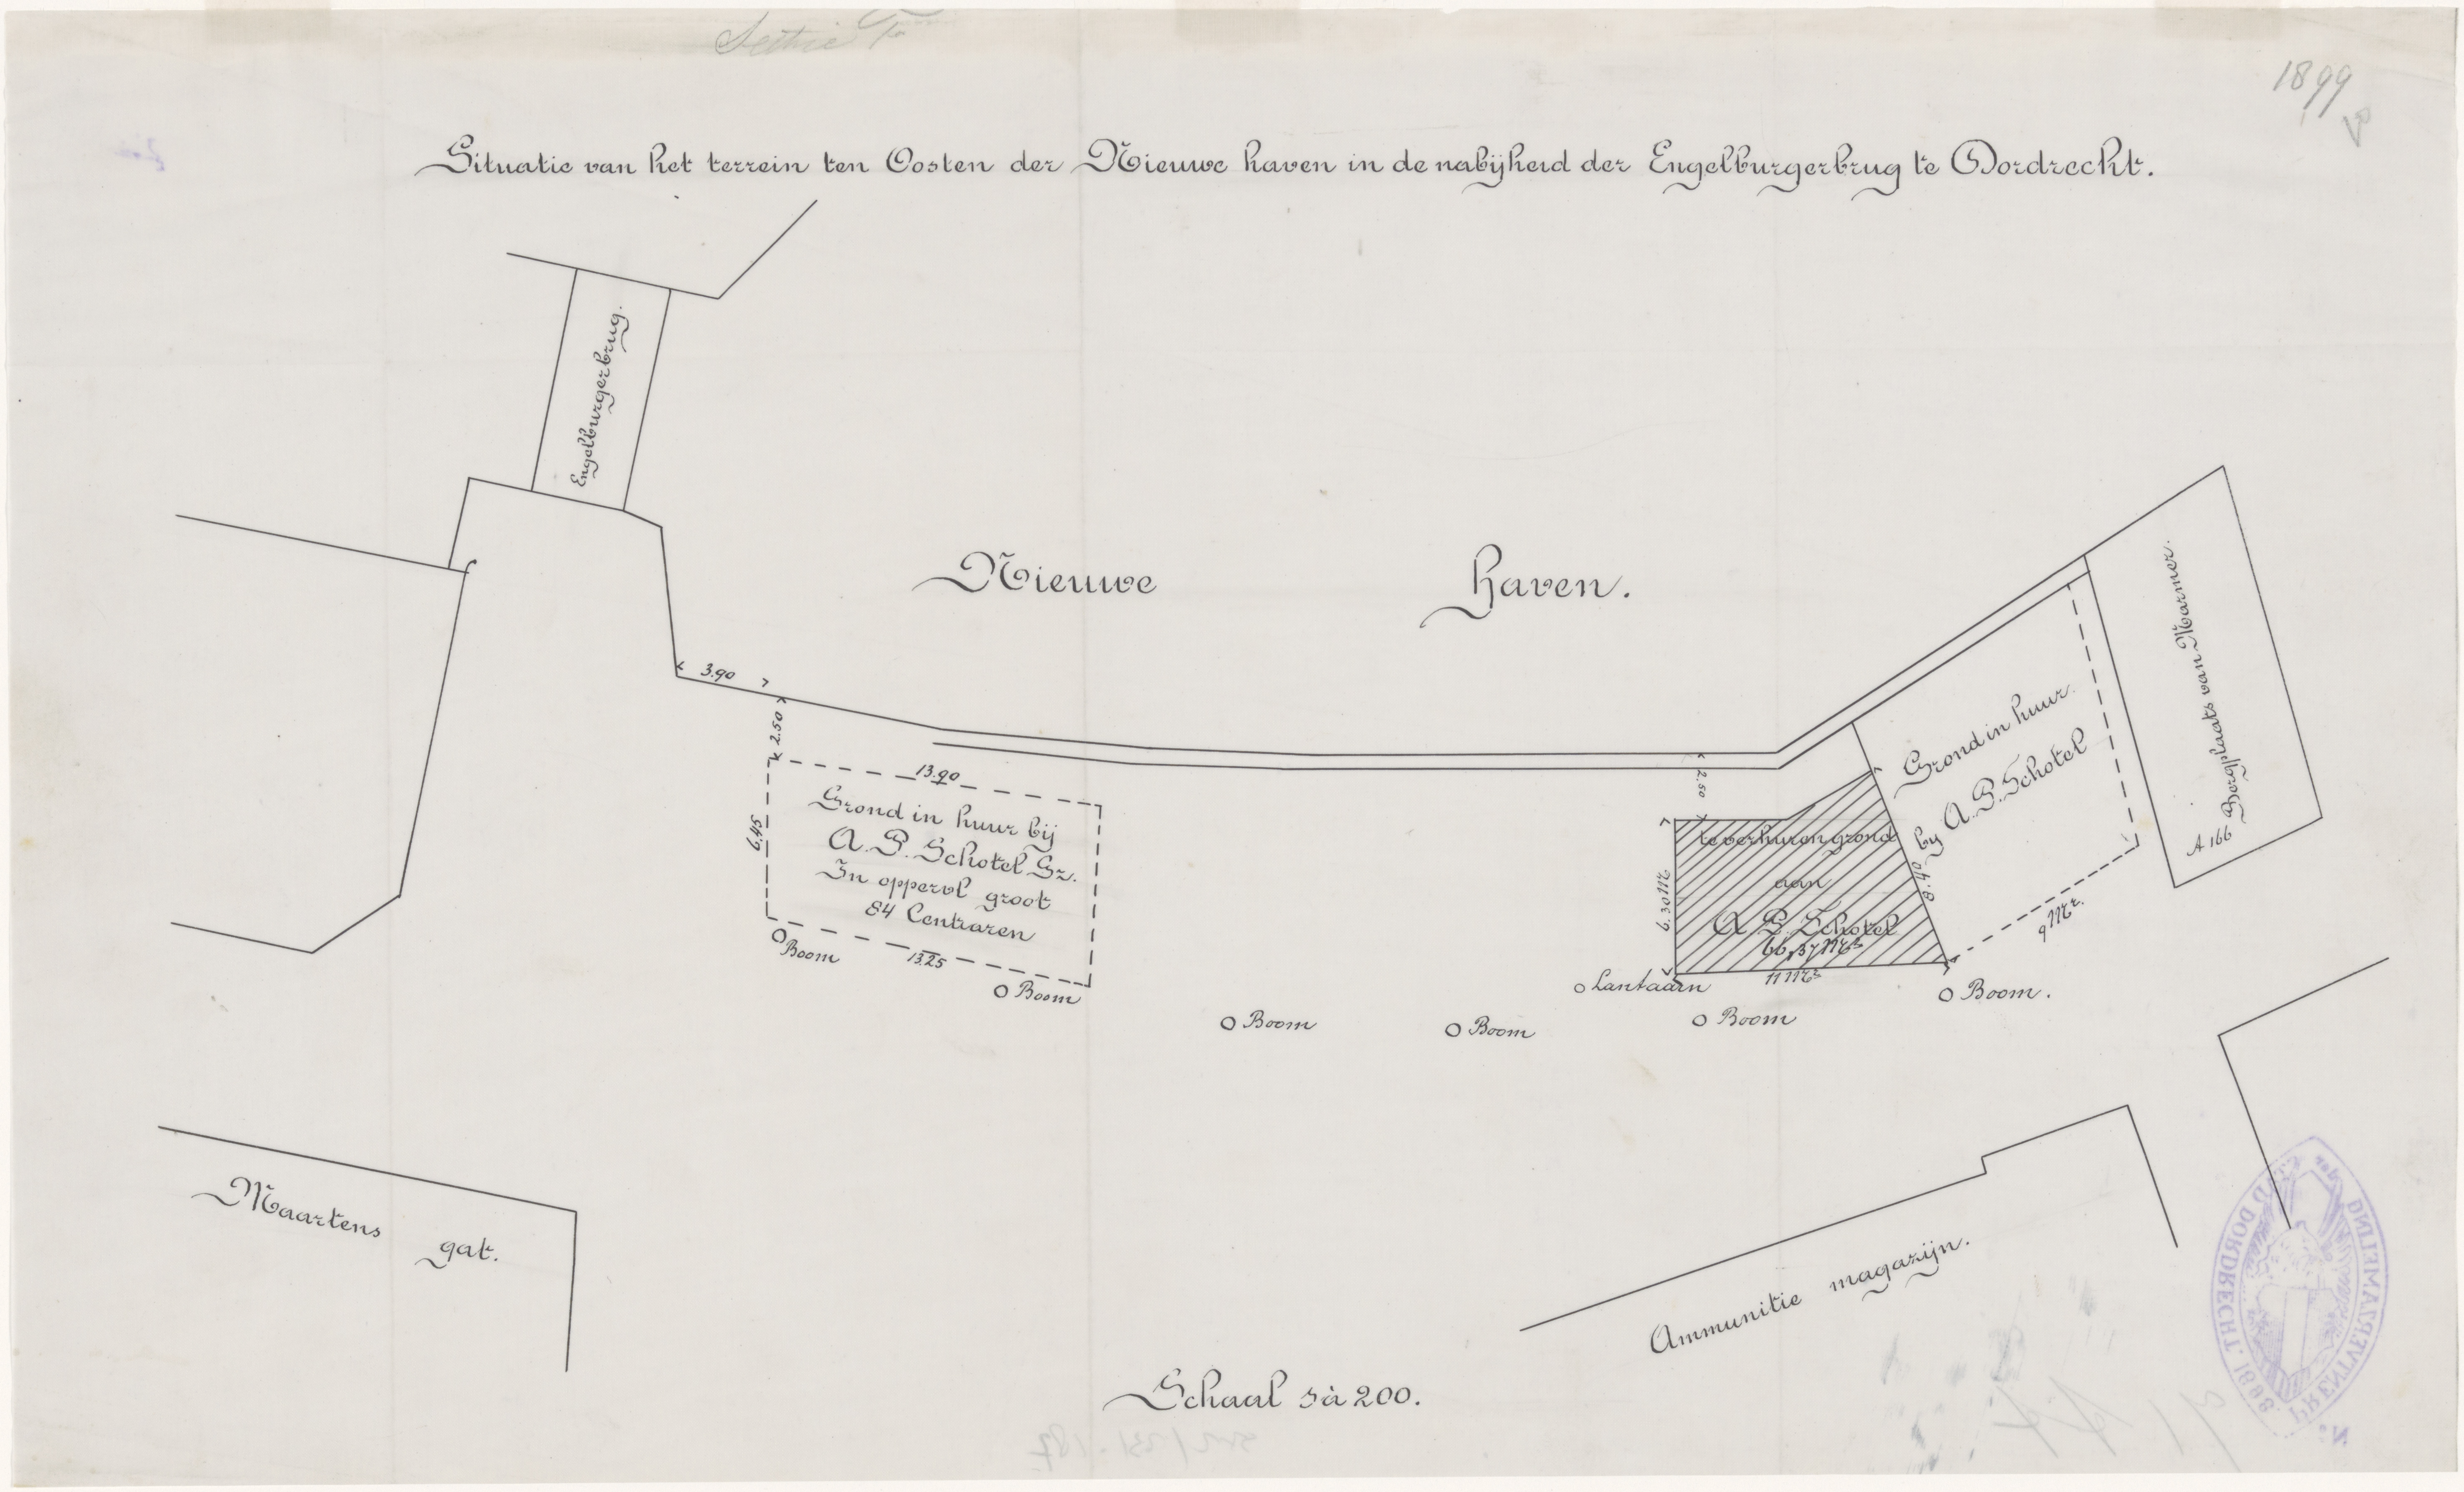 1899
Situatie van het terrein ten Oosten der Nieuwe haven in de nabijheid der Engelburgerbrug te Dordrecht.
Engelburgerbrug.
Nieuwe haven.
3.90
2.50
13.90
6.45
Grond in huur bij
A. P. Schotel Gz.
In oppervl groot
84 Centiaren
13.25
Boom
Boom
Boom
Boom
Lantaarn
Boom
Boom.
2.50
6.30 M
te verhuren grond
aan
A P. Schotel
11 M
8.40
Grond in huur
by A. P. Schotel
9 M
A 166 Bergplaats van Marmer.
Maartens gat.
Ammunitie magazijn.
Schaal 1 à 200.
STAD DORDRECHT. 1898
PRENTVERZAMELING der
Nº